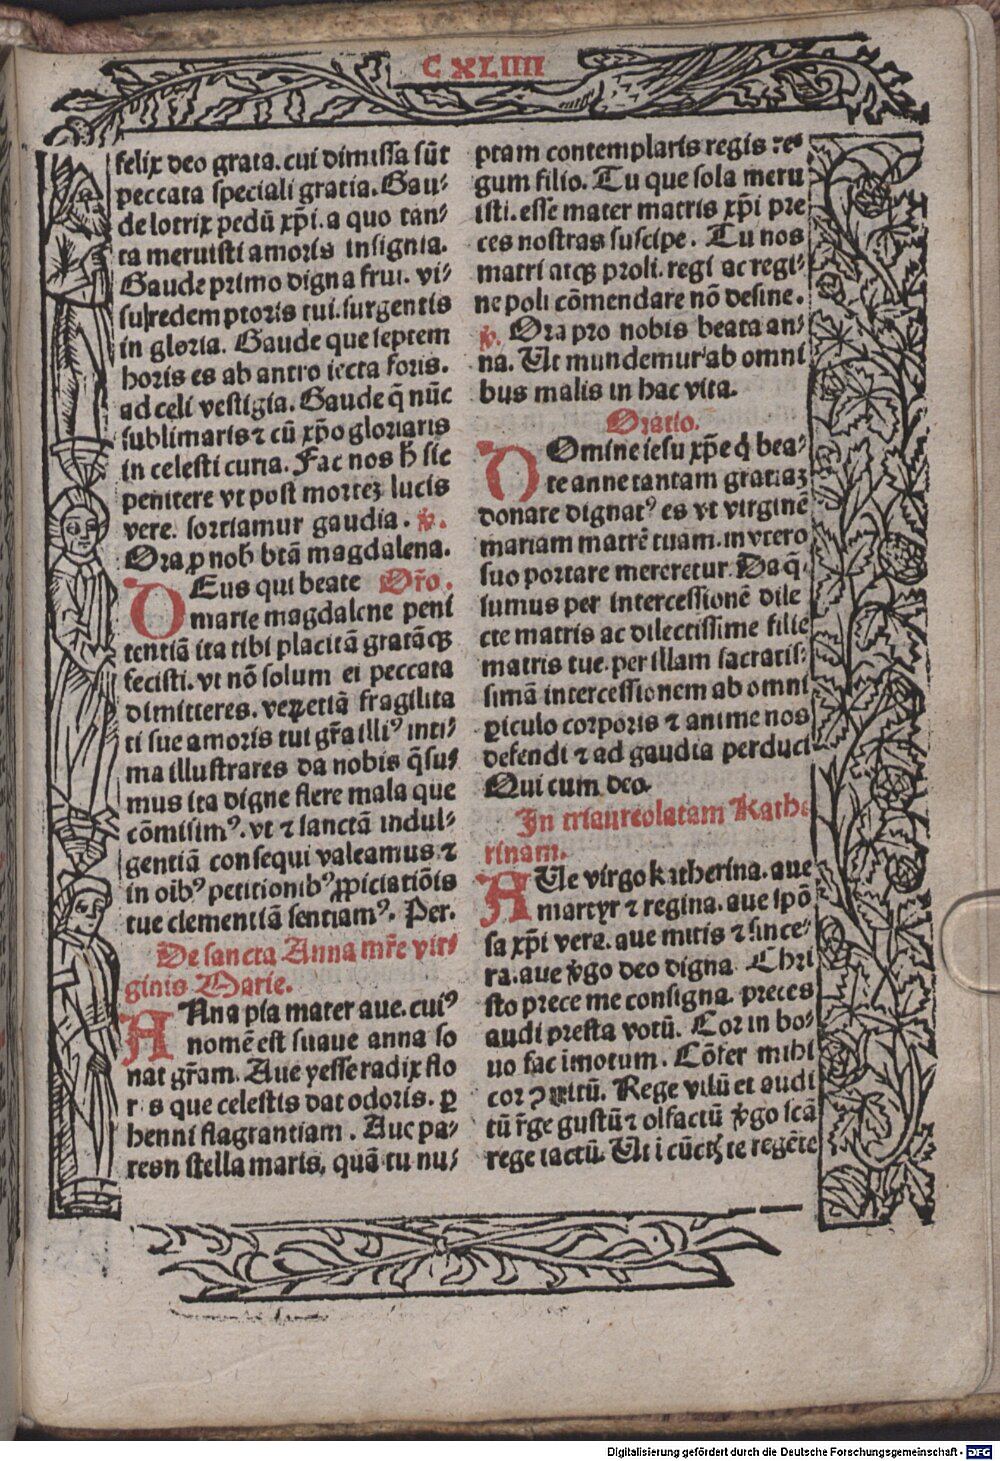 C XLIIII
felix deo grata. cui dimissa sūt
peccata speciali gratia. Gau⸗
de lotrix pedū xp̄i. a quo tan⸗
ta meruisti amoris insignia.
Gaude primo digna frui. vi⸗
su redemptoris tui. surgentis
in gloria. Gaude que septem
horis es ab antro iecta foris.
ad celi vestigia. Gaude q̄ nūc
sublimaris ⁊ cū xp̄o gloriaris
in celesti curia. Fac nos h̄ sic
penitere vt post morteꝫ lucis
vere. sortiamur gaudia. ℣.
Ora ꝓ nob̄ btā magdalena.
DEus qui beate Or̄o.
marie magdalene peni
tentiā ita tibi placitā gratāqꝫ
fecisti. vt nō solum ei peccata
dimitteres. veꝝetiā fragilita
ti sue amoris tui gr̄a illiꝰ inti⸗
ma illustrares da nobis q̄su⸗
mus ita digne flere mala que
cōmisimꝰ. vt ⁊ sanctā indul⸗
gentiā consequi valeamus ⁊
in oībꝰ petitionibꝰ ꝓpiciatiōis
tue clementiā sentiamꝰ. Per.
De sancta Anna mr̄e vir⸗
ginis Marie.
ANna pia mater aue. cuiꝰ
nomē est suaue anna so
nat gr̄am. Aue yesse radix flo
r s que celestis dat odoris. ꝑ
henni flagrantiam. Aue pa⸗
resn stella maris, quā tu nu⸗
ptam contemplaris regis re⸗
gum filio. Tu que sola meru
isti. esse mater matris xp̄i pre
ces nostras suscipe. Tu nos
matri atqꝫ proli. regi ac regi⸗
ne poli cōmendare nō desine.
℣. Ora pro nobis beata an⸗
na. Ut mundemur ab omni
bus malis in hac vita.
Oratio.
DOmine iesu xp̄e q̇ bea⸗
te anne tantam gratiaꝫ
donare dignatꝰ es vt virginē
mariam matrē tuam. in vtero
suo portare mereretur Da q̄⸗
sumus per intercessionē dile
cte matris ac dilectissime filie
matris tue. per illam sacratis⸗
simā intercessionem ab omni
ꝑiculo corporis ⁊ anime nos
defendi ⁊ ad gaudia perduci
Qui cum deo.
In triaureolatam Kathe
rinam.
AUe virgo katherina. aue
martyr ⁊ regina. aue spō
sa xp̄i vera. aue mitis ⁊ since⸗
ra. aue v̊go deo digna Chri
sto prece me consigna. preces
audi presta votū. Cor in bo⸗
no fac īmotum. Cōfer mihi
cor ꝯtritū. Rege visū et audi
tū r̄ge gustū ⁊ olfactū v̊go scā
rege tactū. Ut ī cūctꝭ te regēte
Digitalisierung gefördert durch die Deutsche Forschungsgemeinschaft - DFG